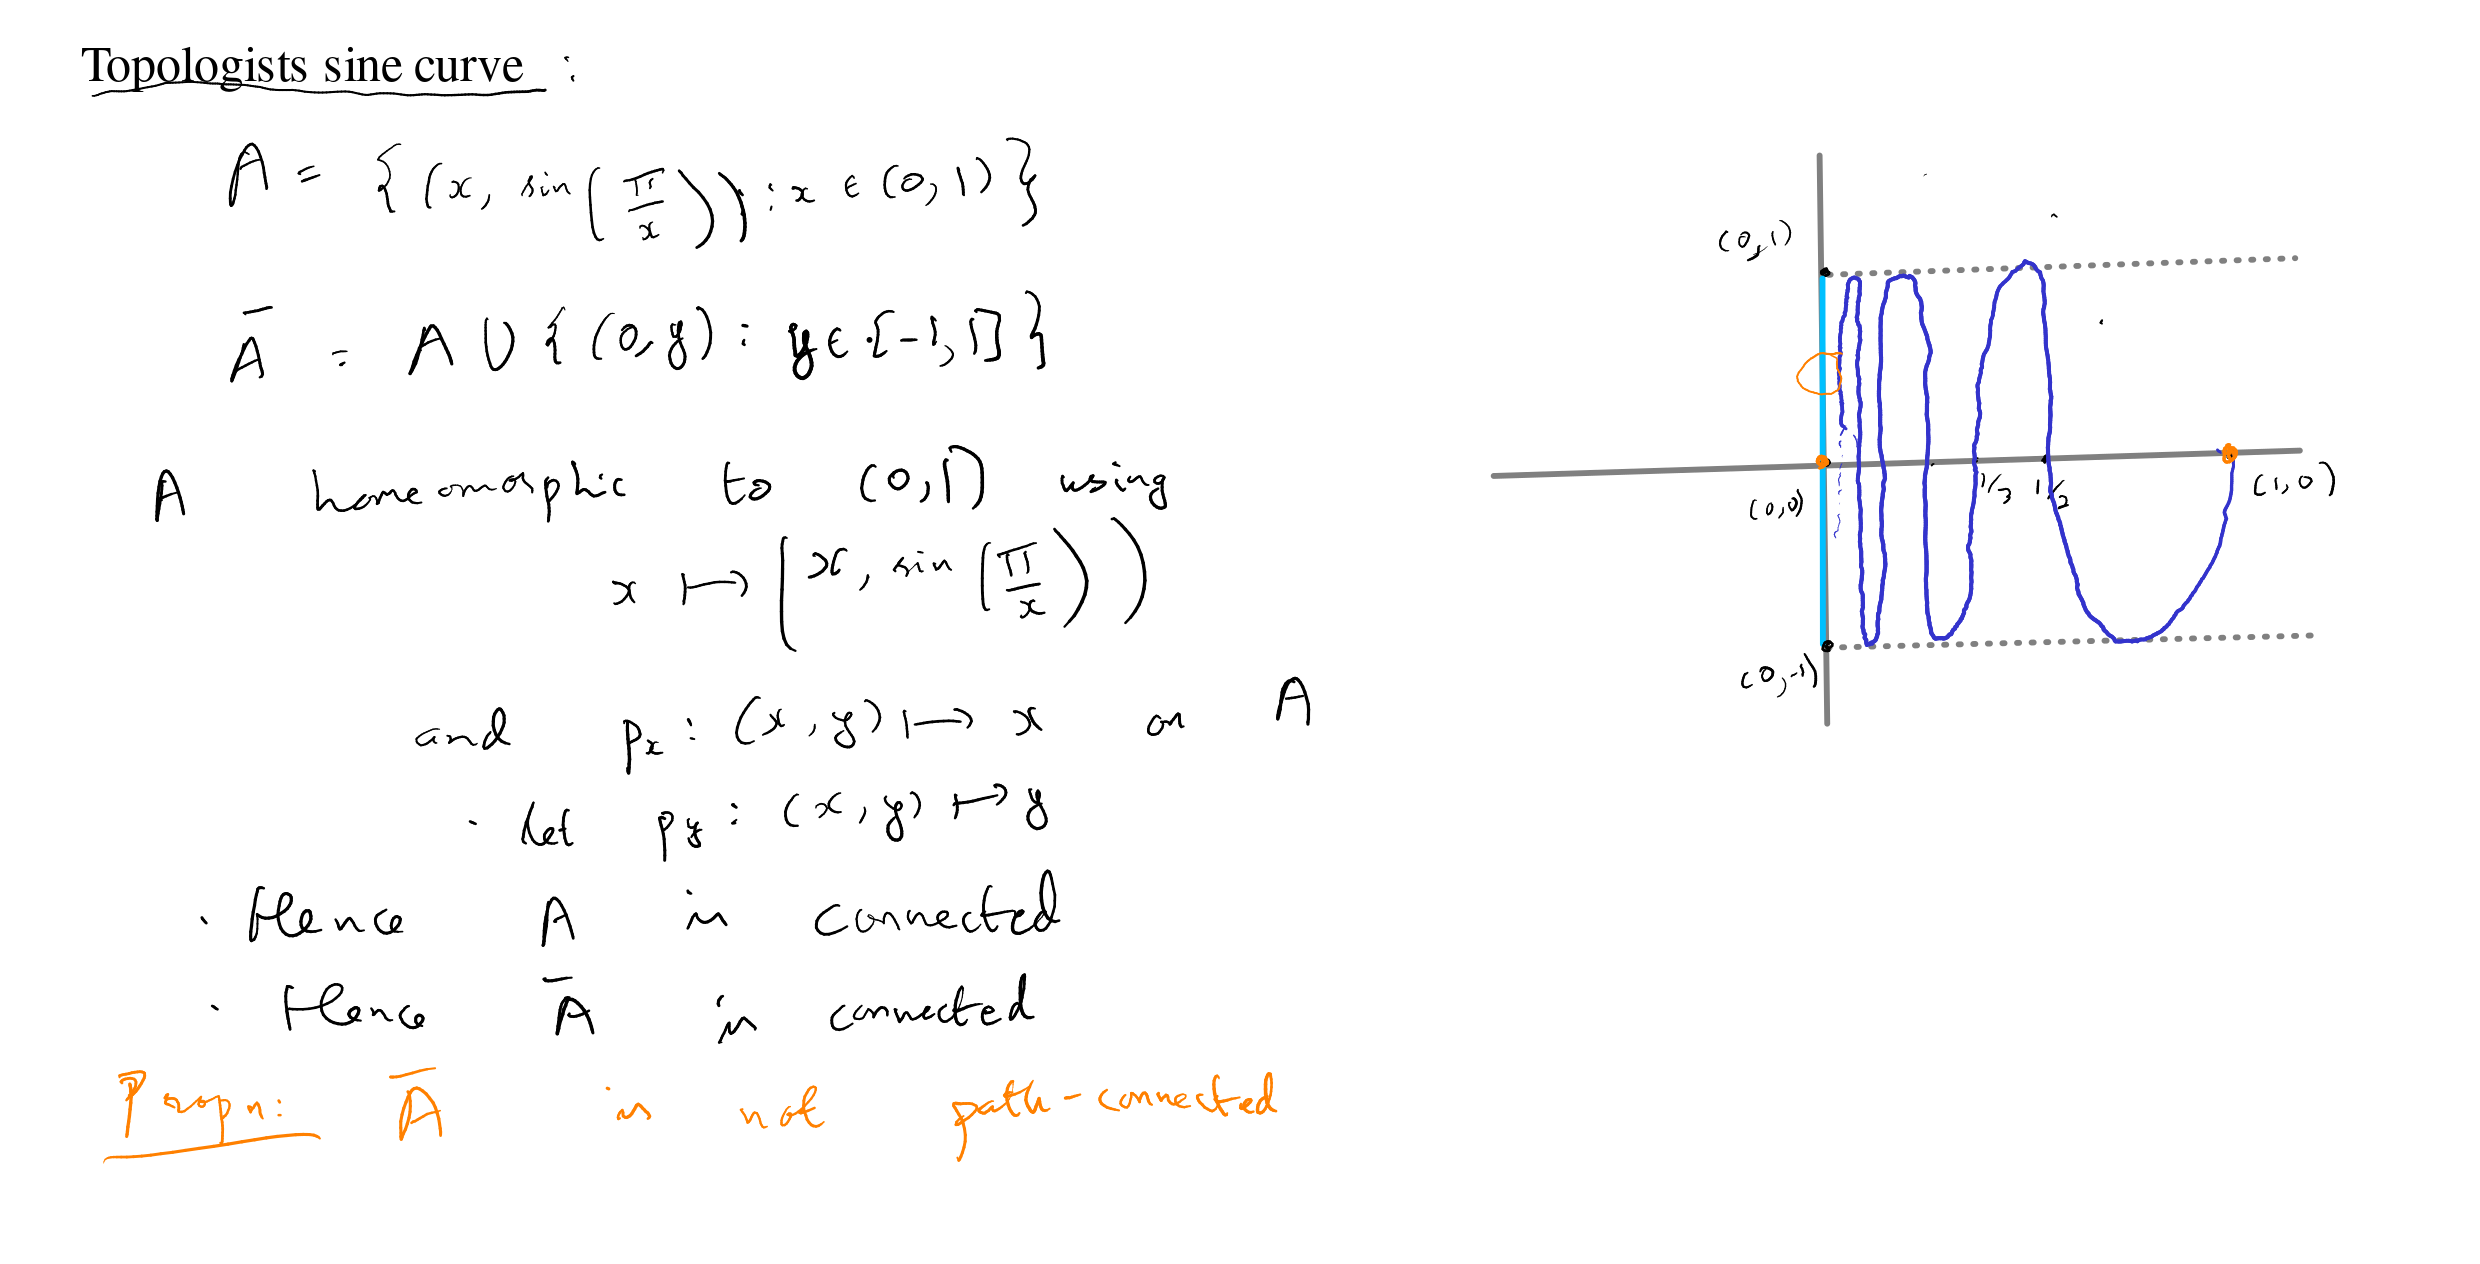 Topologists sine curve :
A = { (x, sin(π/x)) : x ∈ (0, 1) }
Ā = A ∪ { (0, y) : y ∈ [-1, 1] }
A homeomorphic to (0, 1) using
x ↦ (x, sin(π/x))
and pₓ : (x, y) ↦ x on A
· Let p_y : (x, y) ↦ y
· Hence A is connected
· Hence Ā is connected
Propn: Ā is not path-connected
(0, 1)
(0, 0)
1/3
1/2
(1, 0)
(0, -1)